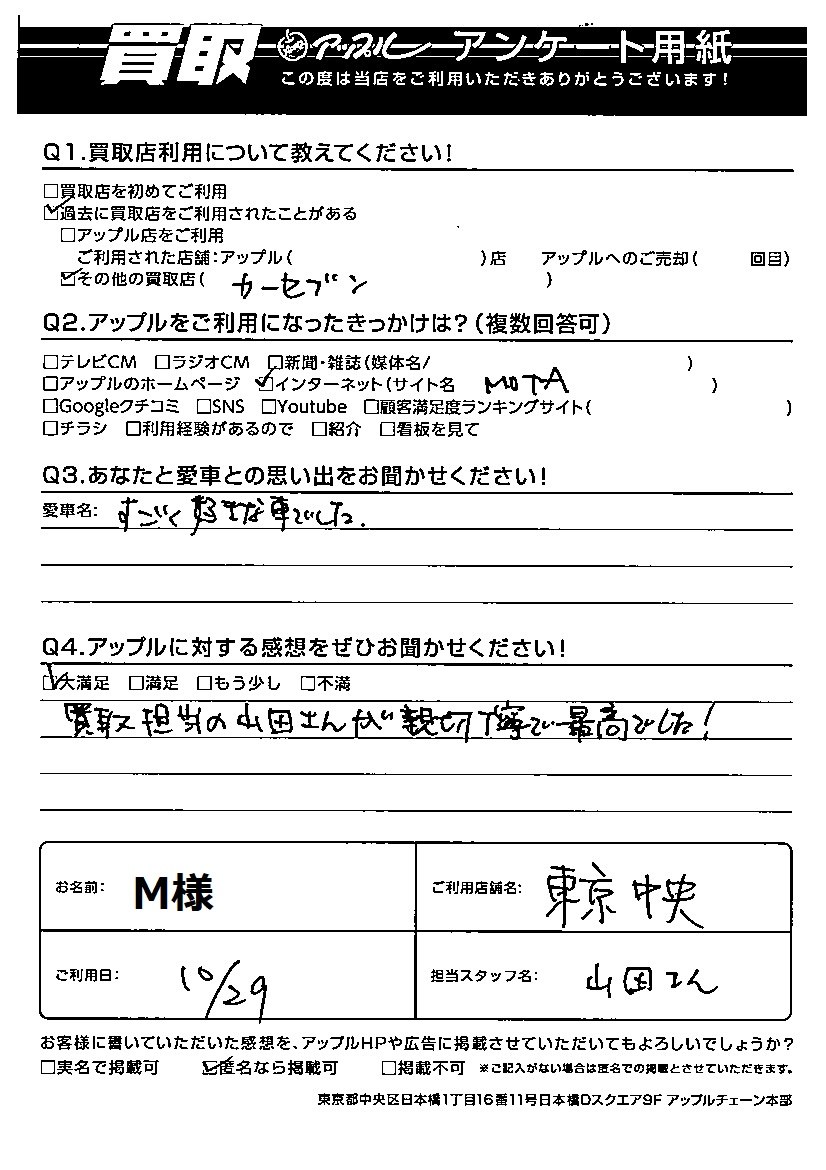 買取 アップル アンケート用紙
この度は当店をご利用いただきありがとうございます!
Q1.買取店利用について教えてください!
□買取店を初めてご利用
☑過去に買取店をご利用されたことがある
□アップル店をご利用
ご利用された店舗:アップル( )店 アップルへのご売却( 回目)
☑その他の買取店( カーセブン )
Q2.アップルをご利用になったきっかけは?(複数回答可)
□テレビCM □ラジオCM □新聞・雑誌(媒体名/ )
□アップルのホームページ ☑インターネット(サイト名 MOTA )
□Googleクチコミ □SNS □Youtube □顧客満足度ランキングサイト( )
□チラシ □利用経験があるので □紹介 □看板を見て
Q3.あなたと愛車との思い出をお聞かせください!
愛車名: すごく好きな車でした.
Q4.アップルに対する感想をぜひお聞かせください!
☑大満足 □満足 □もう少し □不満
買取担当の山田さんが親切丁寧で最高でした!
お名前: M様 ご利用店舗名: 東京中央
ご利用日: 10/29 担当スタッフ名: 山田さん
お客様に書いていただいた感想を、アップルHPや広告に掲載させていただいてもよろしいでしょうか?
□実名で掲載可 ☑匿名なら掲載可 □掲載不可 ※ご記入がない場合は匿名での掲載とさせていただきます。
東京都中央区日本橋1丁目16番11号日本橋Dスクエア9F アップルチェーン本部